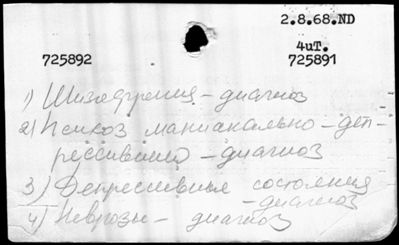 2.8.68.ND
4uT.
725892 725891
1) Шизофрения – диагноз
2) Психоз маниакально – деп-
рессивный – диагноз
3) Депрессивные состояния
– диагноз
4) Неврозы – диагноз